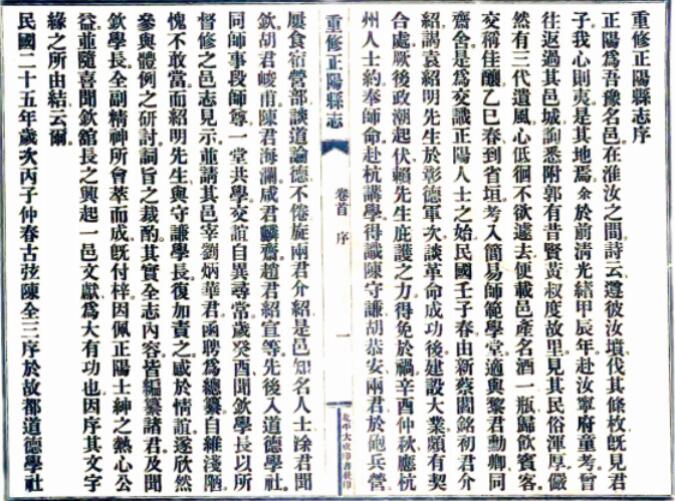 重修正陽縣志序
正陽爲吾豫名邑在淮汝之間詩云遵彼汝墳伐其條枚旣見君
子我心則夷是其地焉余於前清光緒甲辰年赴汝寧府童考曾
往返過其邑城詢悉附郭有昔賢黃叔度故里見其民俗渾厚儼
然有三代遺風心低徊不欲遽去便載邑產名酒一瓶歸飲賓客
交稱佳釀乙巳春到省垣考入簡易師範學堂適與黎君勳卿同
齋舍是爲交識正陽人士之始民國壬子春由新蔡閻銘初君介
紹謁袁紹明先生於彰德軍次談革命成功後建設大業頗有契
合處厥後政潮起伏賴先生庇護之力得免於禍辛酉仲秋應杭
州人士約奉師命赴杭講學得識陳守謙胡恭安兩君於砲兵營
重修正陽縣志
卷首
序
一
屢食宿營部談道論德不倦旋兩君介紹是邑知名人士徐君聞
欽胡君峻甫陳君海瀾咸君麟齋趙君紹宣等先後入道德學社
同師事段師尊一堂共學交誼自異尋常歲癸酉聞欽學長以所
督修之邑志見示並請其邑宰劉炳華君函聘爲總纂自維淺陋
愧不敢當而紹明先生與守謙學長復加責之感於情誼遂欣然
參與體例之研討詞旨之裁酌其實全志內容皆編纂諸君及聞
欽學長全副精神所會萃而成旣付梓因佩正陽士紳之熱心公
益並隨喜聞欽舘長之興起一邑文獻爲大有功也因序其文字
緣之所由結云爾
民國二十五年歲次丙子仲春古弦陳全三序於故都道德學社